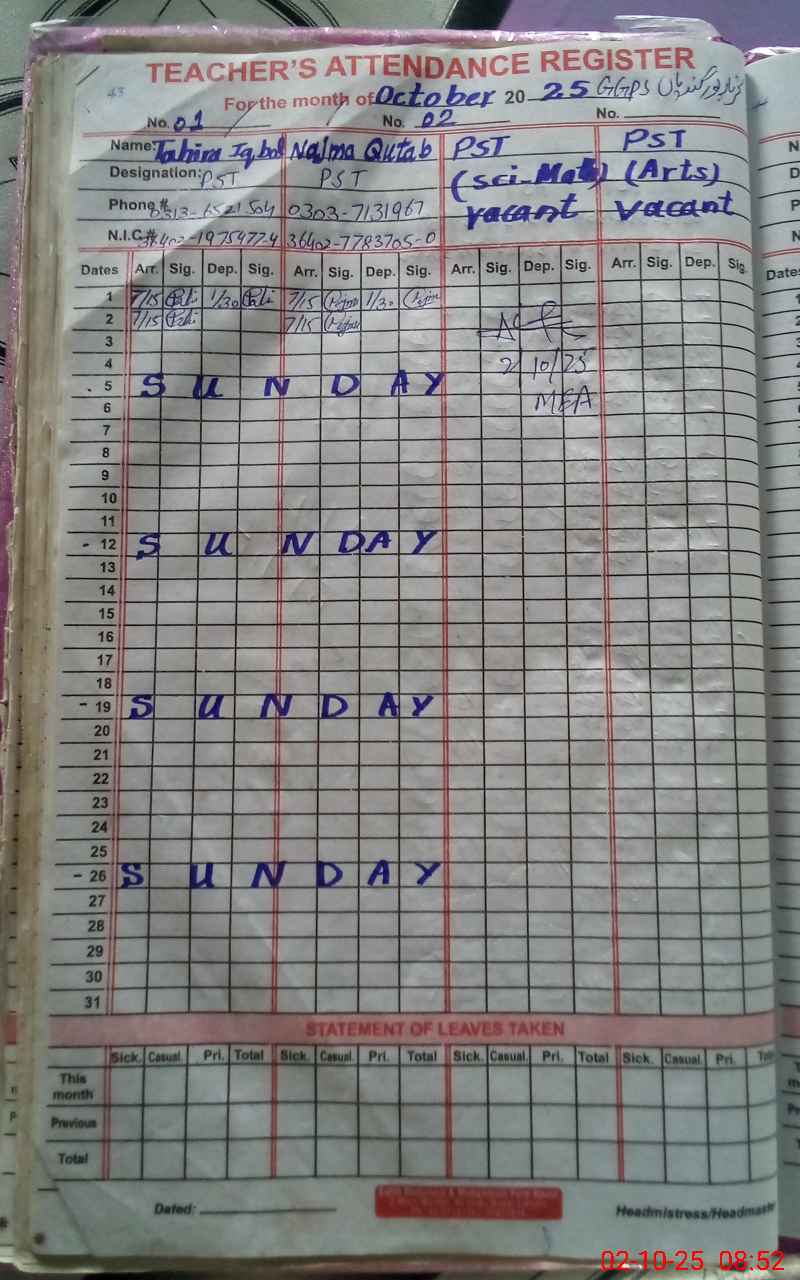 43
TEACHER'S ATTENDANCE REGISTER
For the month of October 20 25 GGPS
No. 01 No. 02 No.
Name: Tahira Iqbal Najma Qutab PST PST
Designation: PST PST (Sci-Math) (Arts)
Phone # 0313-6521504 0303-7131967 vacant vacant
N.I.C.# 36402-7783705-0
Dates Arr. Sig. Dep. Sig. Arr. Sig. Dep. Sig. Arr. Sig. Dep. Sig. Arr. Sig. Dep. Sig.
1 7/15 1/30 7/15 1/30
2 7/15 7/15
3
4 2/10/25
5 S U N D A Y
6 MEA
7
8
9
10
11
- 12 S U N D A Y
13
14
15
16
17
18
- 19 S U N D A Y
20
21
22
23
24
25
- 26 S U N D A Y
27
28
29
30
31
STATEMENT OF LEAVES TAKEN
Sick. Casual. Pri. Total Sick. Casual. Pri. Total Sick. Casual. Pri. Total Sick. Casual. Pri.
This month
Previous
Total
Dated:
Headmistress/Headmaste
02-10-25 08:52